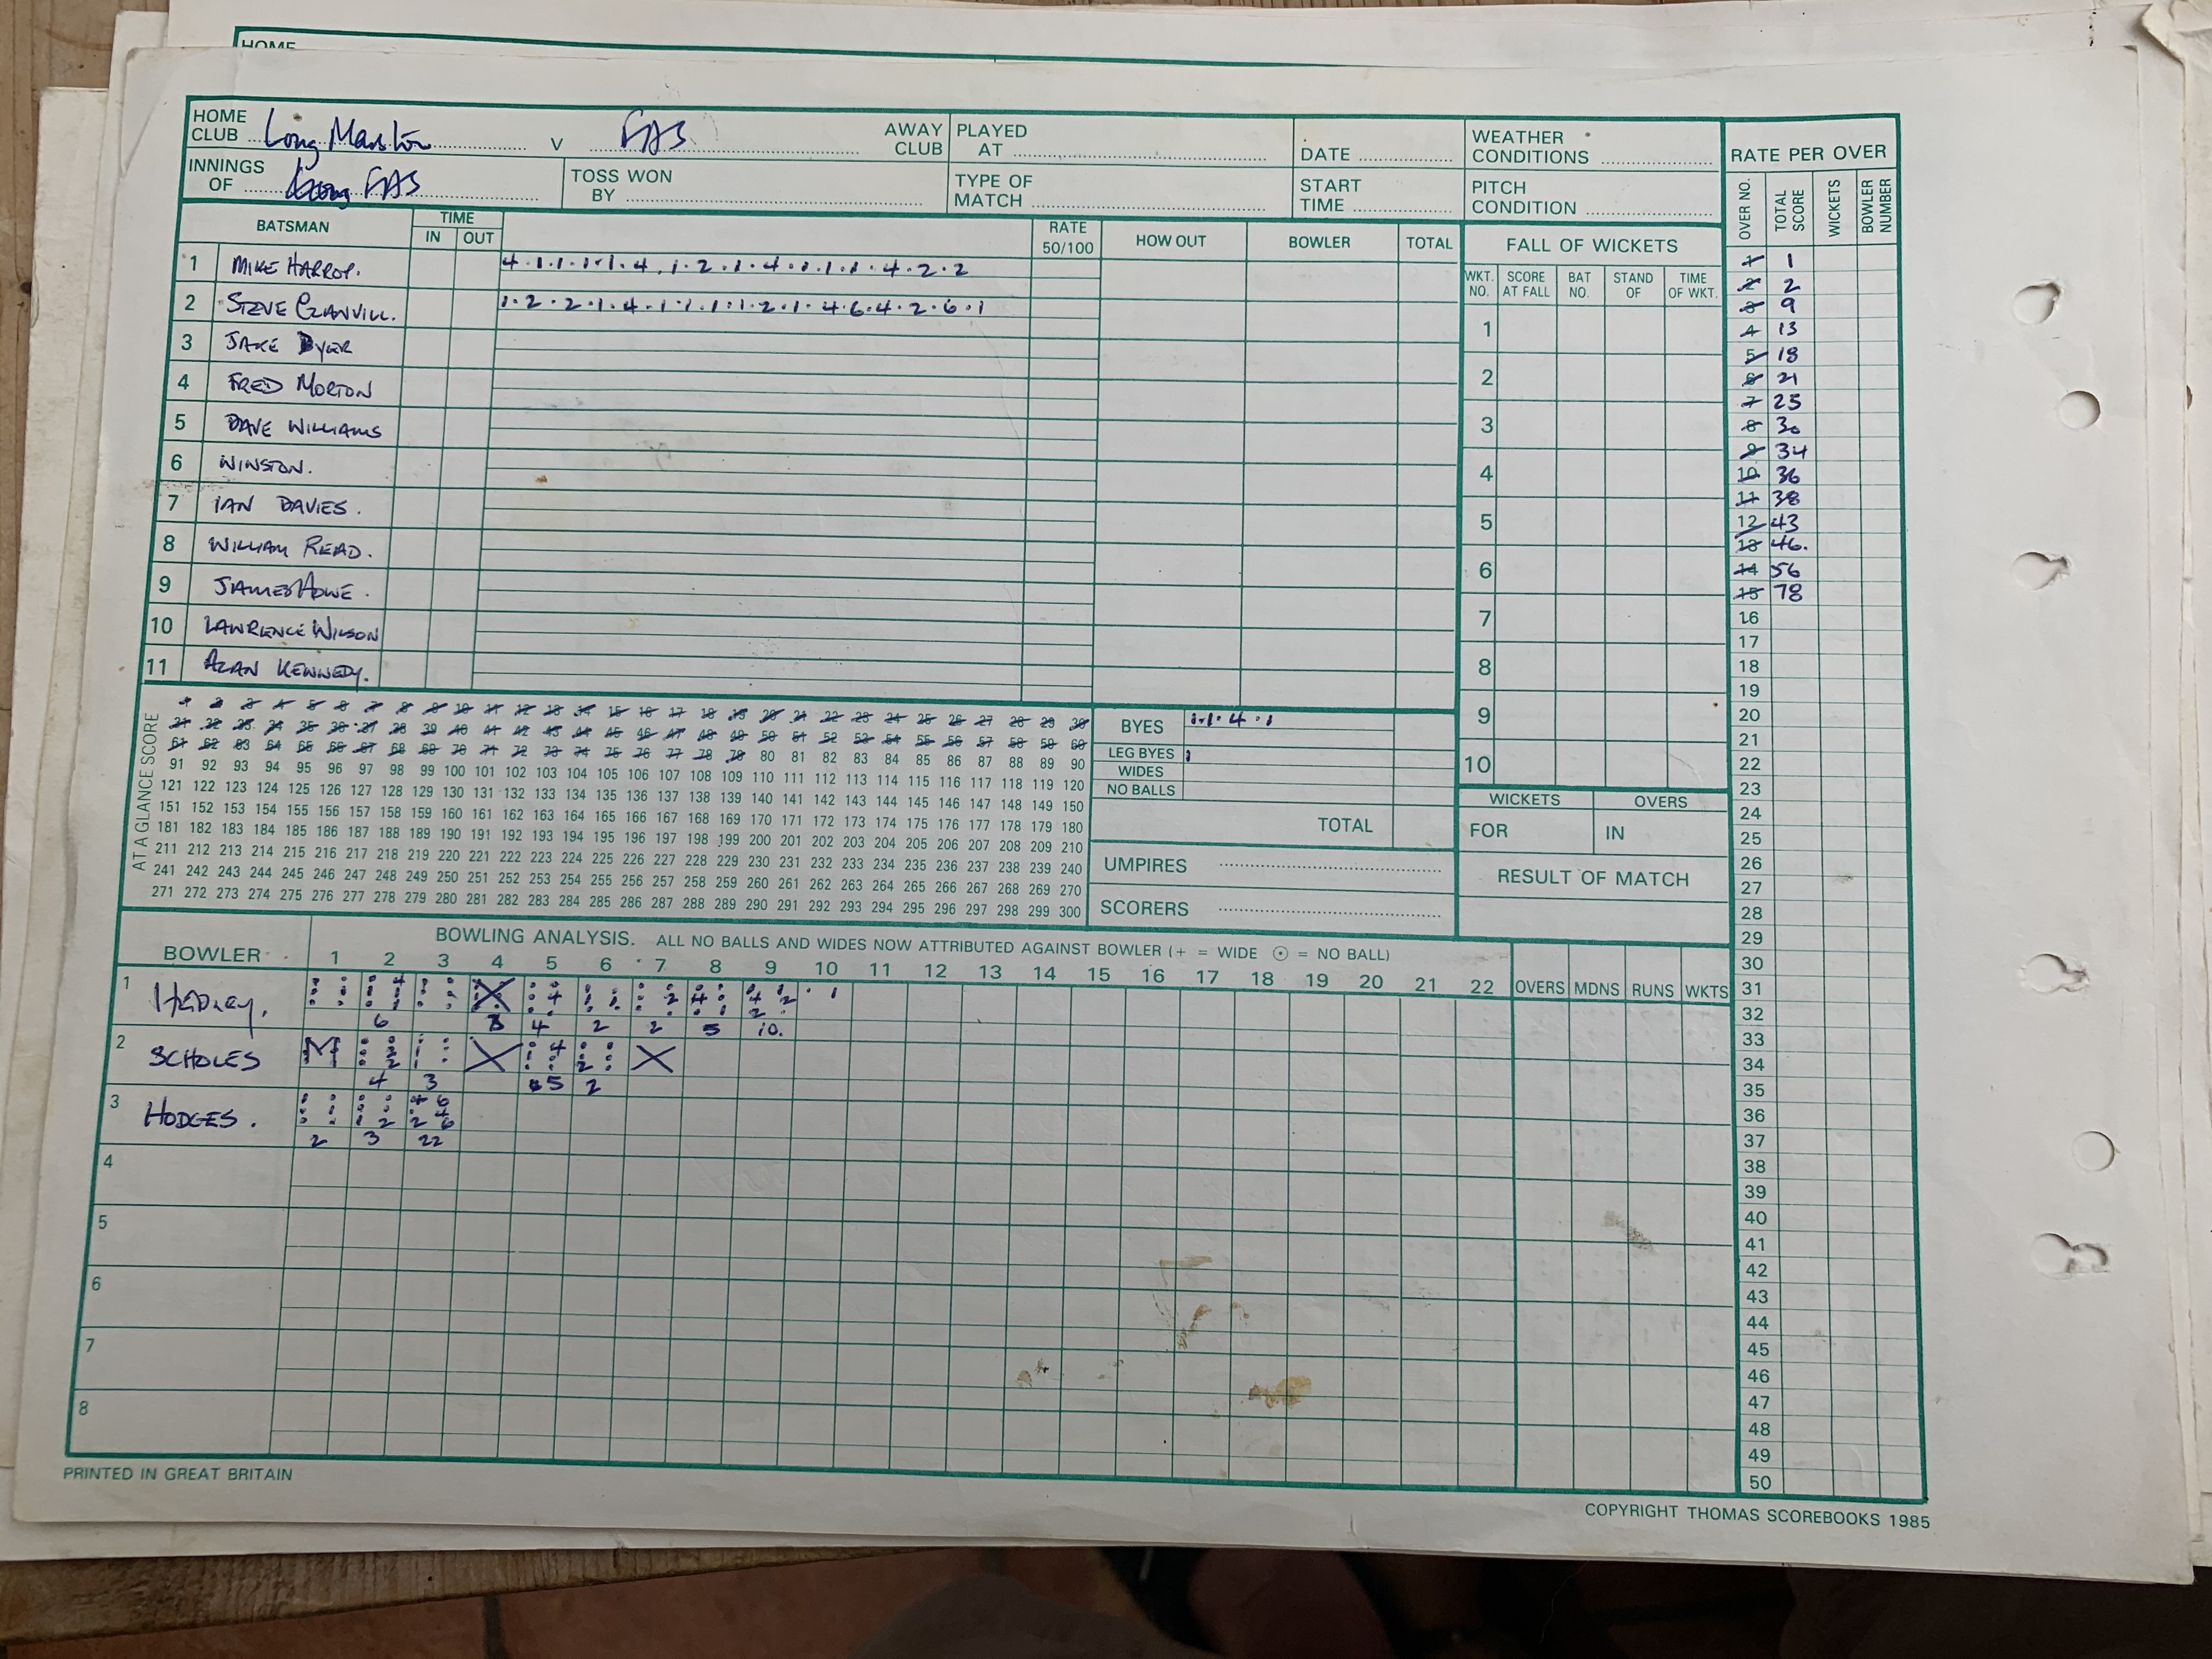 HOME
HOME CLUB Long Marston V FAS AWAY CLUB PLAYED AT DATE WEATHER CONDITIONS RATE PER OVER
INNINGS OF FAS TOSS WON BY TYPE OF MATCH START TIME PITCH CONDITION
OVER NO. TOTAL SCORE WICKETS BOWLER NUMBER
BATSMAN TIME IN OUT RATE 50/100 HOW OUT BOWLER TOTAL FALL OF WICKETS
WKT. NO. SCORE AT FALL BAT NO. STAND OF TIME OF WKT.
1 MIKE HARROP. 4 . 1 . 1 . 1 . 1 . 1 . 4 . 1 . 2 . 1 . 4 . 1 . 1 . 1 . 4 . 2 . 2
2 STEVE GLANVILL. 1 . 2 . 2 . 1 . 4 . 1 . 1 . 1 . 1 . 2 . 1 . 4 . 6 . 4 . 2 . 6 . 1
3 JAKE DYER
4 FRED MORTON
5 DAVE WILLIAMS
6 WINSTON.
7 IAN DAVIES.
8 WILLIAM READ.
9 JAMES HOWE.
10 LAWRENCE WILSON
11 ALAN KENNEDY.
1
2
3
4
5
6
7
8
9
10
1 1
2 2
3 9
4 13
5 18
6 21
7 25
8 30
9 34
10 36
11 38
12 43
13 46.
14 56
15 78
16
17
18
19
20
21
22
23
24
25
26
27
28
29
30
31
32
33
34
35
36
37
38
39
40
41
42
43
44
45
46
47
48
49
50
AT A GLANCE SCORE
1 2 3 4 5 6 7 8 9 10 11 12 13 14 15 16 17 18 19 20 21 22 23 24 25 26 27 28 29 30
31 32 33 34 35 36 37 38 39 40 41 42 43 44 45 46 47 48 49 50 51 52 53 54 55 56 57 58 59 60
61 62 63 64 65 66 67 68 69 70 71 72 73 74 75 76 77 78 79 80 81 82 83 84 85 86 87 88 89 90
91 92 93 94 95 96 97 98 99 100 101 102 103 104 105 106 107 108 109 110 111 112 113 114 115 116 117 118 119 120
121 122 123 124 125 126 127 128 129 130 131 132 133 134 135 136 137 138 139 140 141 142 143 144 145 146 147 148 149 150
151 152 153 154 155 156 157 158 159 160 161 162 163 164 165 166 167 168 169 170 171 172 173 174 175 176 177 178 179 180
181 182 183 184 185 186 187 188 189 190 191 192 193 194 195 196 197 198 199 200 201 202 203 204 205 206 207 208 209 210
211 212 213 214 215 216 217 218 219 220 221 222 223 224 225 226 227 228 229 230 231 232 233 234 235 236 237 238 239 240
241 242 243 244 245 246 247 248 249 250 251 252 253 254 255 256 257 258 259 260 261 262 263 264 265 266 267 268 269 270
271 272 273 274 275 276 277 278 279 280 281 282 283 284 285 286 287 288 289 290 291 292 293 294 295 296 297 298 299 300
BYES 1 . 1 . 4 . 1
LEG BYES 1
WIDES
NO BALLS
TOTAL
UMPIRES
SCORERS
WICKETS OVERS
FOR IN
RESULT OF MATCH
BOWLING ANALYSIS. ALL NO BALLS AND WIDES NOW ATTRIBUTED AGAINST BOWLER (+ = WIDE ⊙ = NO BALL)
BOWLER 1 2 3 4 5 6 7 8 9 10 11 12 13 14 15 16 17 18 19 20 21 22 OVERS MDNS RUNS WKTS
1 HEDLEY.
6 4 2 2 5 10.
2 SCHOLES M
4 3 5 2
3 HODGES.
2 3 22
4
5
6
7
8
PRINTED IN GREAT BRITAIN
COPYRIGHT THOMAS SCOREBOOKS 1985